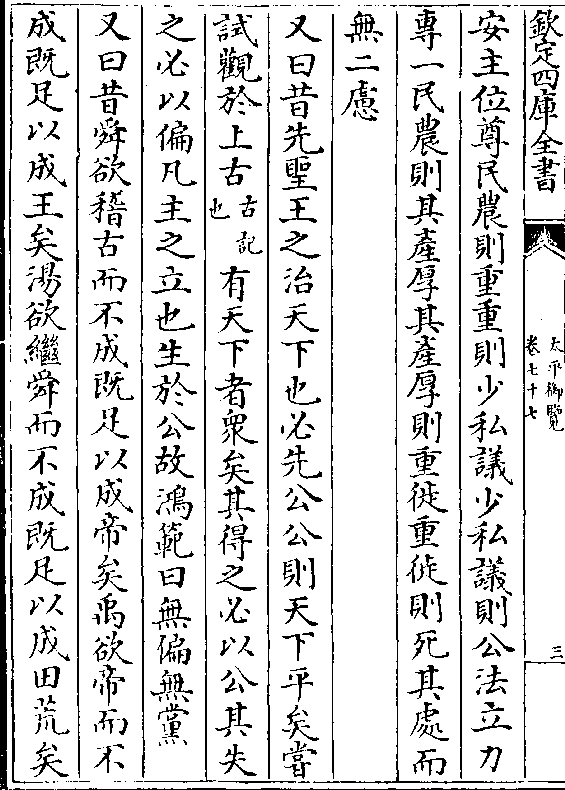 欽定四庫全書
太平御覽
卷七十七
三
安主位尊民農則重重則少私議少私議則公法立力
專一民農則其產厚其產厚則重徙重徙則死其處而
無二慮
又曰昔先聖王之治天下也必先公公則天下平矣嘗
試觀於上古古記也有天下者衆矣其得之必以公其失
之必以偏凡主之立也生於公故鴻範曰無偏無黨
又曰昔舜欲稽古而不成既足以成帝矣禹欲帝而不
成既足以成王矣湯欲繼舜而不成既足以成田荒矣